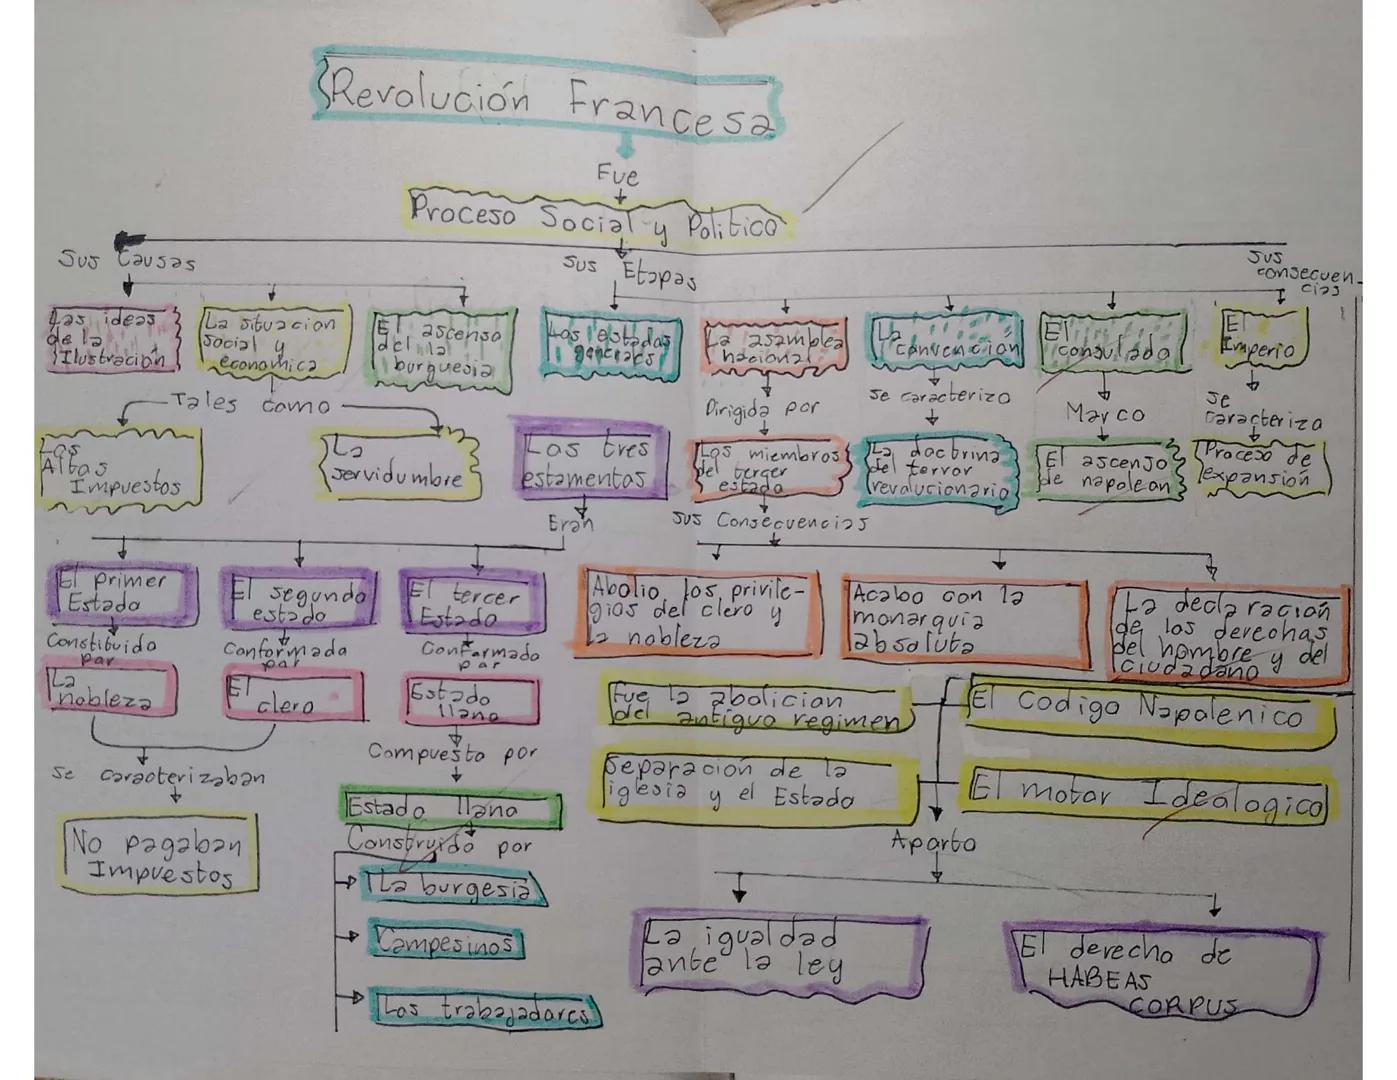 Revolución Francesa
Fue
Proceso Social y Politico
Sus Causas
Sus Etapas
Sus
consecuen-
cias
Las ideas
de la
Ilustración
La situacion
social y
economica
El ascenso
del la
burguesia
Los estados
generales
La asamblea
nacional
La
convencion
El
consulado
El
Imperio
Tales como
Dirigida por
Se caracterizo
Marco
Se
caracteriza
Los
Altos
Impuestos
La
servidumbre
Los tres
estamentos
Los miembros
del tercer
estado
La doctrina
del terror
revolucionario
El ascenso
de napoleon
Proceso de
expansión
Eran
Sus Consecuencias
El primer
Estado
El segundo
estado
El tercer
Estado
Abolio los privile-
gios del clero y
la nobleza
Acabo con la
monarquia
absoluta
La declaración
de los derechos
del hombre y del
ciudadano
Constituido
por
Conformada
por
Conformado
por
La
nobleza
El
clero
Estado
llano
Fue la abolicion
del antiguo regimen
El Codigo Napolenico
Se caracterizaban
Compuesto por
Separación de la
iglesia y el Estado
El motor Idealogico
No pagaban
Impuestos
Estado llano
Construido por
Aporto
La burgesia
Campesinos
Los trabajadores
La igualdad
ante la ley
El derecho de
HABEAS
CORPUS